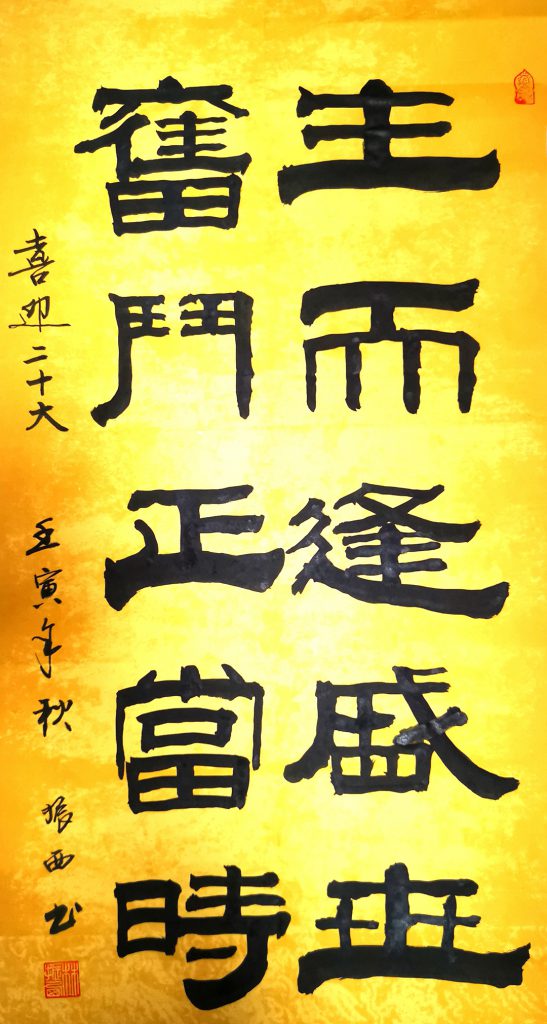 生而逢盛世
奮鬥正當時
喜迎二十大
壬寅年秋
振西书